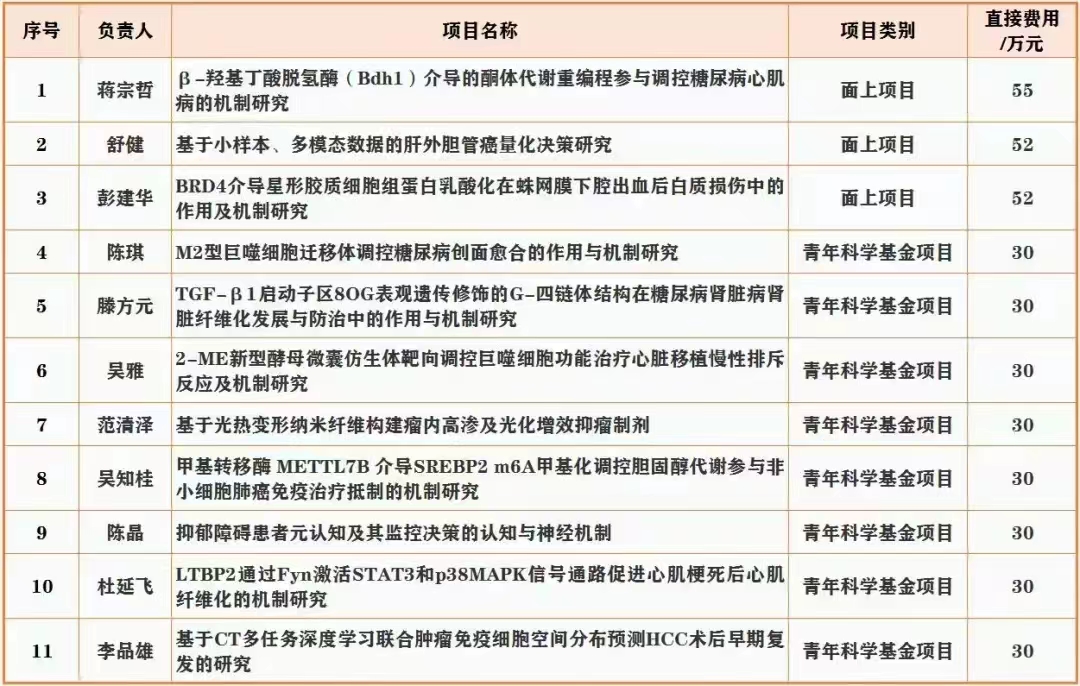 序号 负责人 项目名称 项目类别 直接费用
/万元
1 蒋宗哲 β-羟基丁酸脱氢酶（Bdh1）介导的酮体代谢重编程参与调控糖尿病心肌
病的机制研究 面上项目 55
2 舒健 基于小样本、多模态数据的肝外胆管癌量化决策研究 面上项目 52
3 彭建华 BRD4介导星形胶质细胞组蛋白乳酸化在蛛网膜下腔出血后白质损伤中的
作用及机制研究 面上项目 52
4 陈琪 M2型巨噬细胞迁移体调控糖尿病创面愈合的作用与机制研究 青年科学基金项目 30
5 滕方元 TGF-β1启动子区8OG表观遗传修饰的G-四链体结构在糖尿病肾脏病肾
脏纤维化发展与防治中的作用与机制研究 青年科学基金项目 30
6 吴雅 2-ME新型酵母微囊仿生体靶向调控巨噬细胞功能治疗心脏移植慢性排斥
反应及机制研究 青年科学基金项目 30
7 范清泽 基于光热变形纳米纤维构建瘤内高渗及光化增效抑瘤制剂 青年科学基金项目 30
8 吴知桂 甲基转移酶 METTL7B 介导SREBP2 m6A甲基化调控胆固醇代谢参与非
小细胞肺癌免疫治疗抵制的机制研究 青年科学基金项目 30
9 陈晶 抑郁障碍患者元认知及其监控决策的认知与神经机制 青年科学基金项目 30
10 杜延飞 LTBP2通过Fyn激活STAT3和p38MAPK信号通路促进心肌梗死后心肌
纤维化的机制研究 青年科学基金项目 30
11 李品雄 基于CT多任务深度学习联合肿瘤免疫细胞空间分布预测HCC术后早期复
发的研究 青年科学基金项目 30